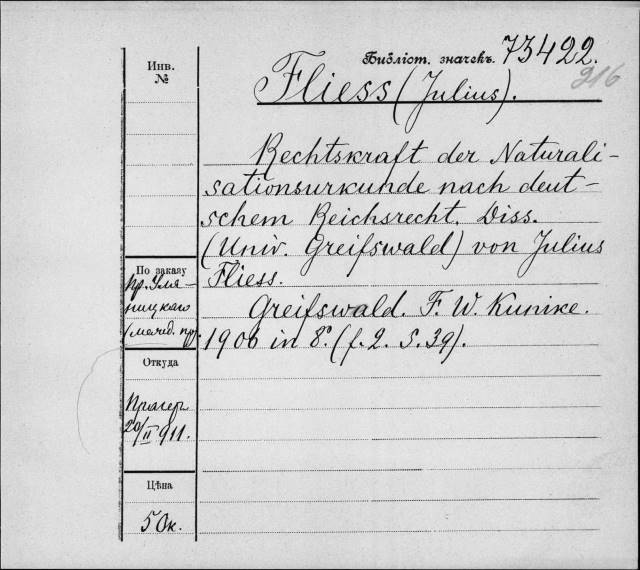 Инв.
№
Библіот. значекъ. 73422.
216
Fliess (Julius).
Rechtskraft der Naturali-
sationsurkunde nach deut-
schem Reichsrecht. Diss.
(Univ. Greifswald) von Julius
Fliess.
Greifswald. F. W. Kunike.
1906 in 8º. (f. 2. S. 39).
По заказу
пр. Уля-
ницкаго
Откуда
Прагеръ
20/II 911.
Цѣна
50к.